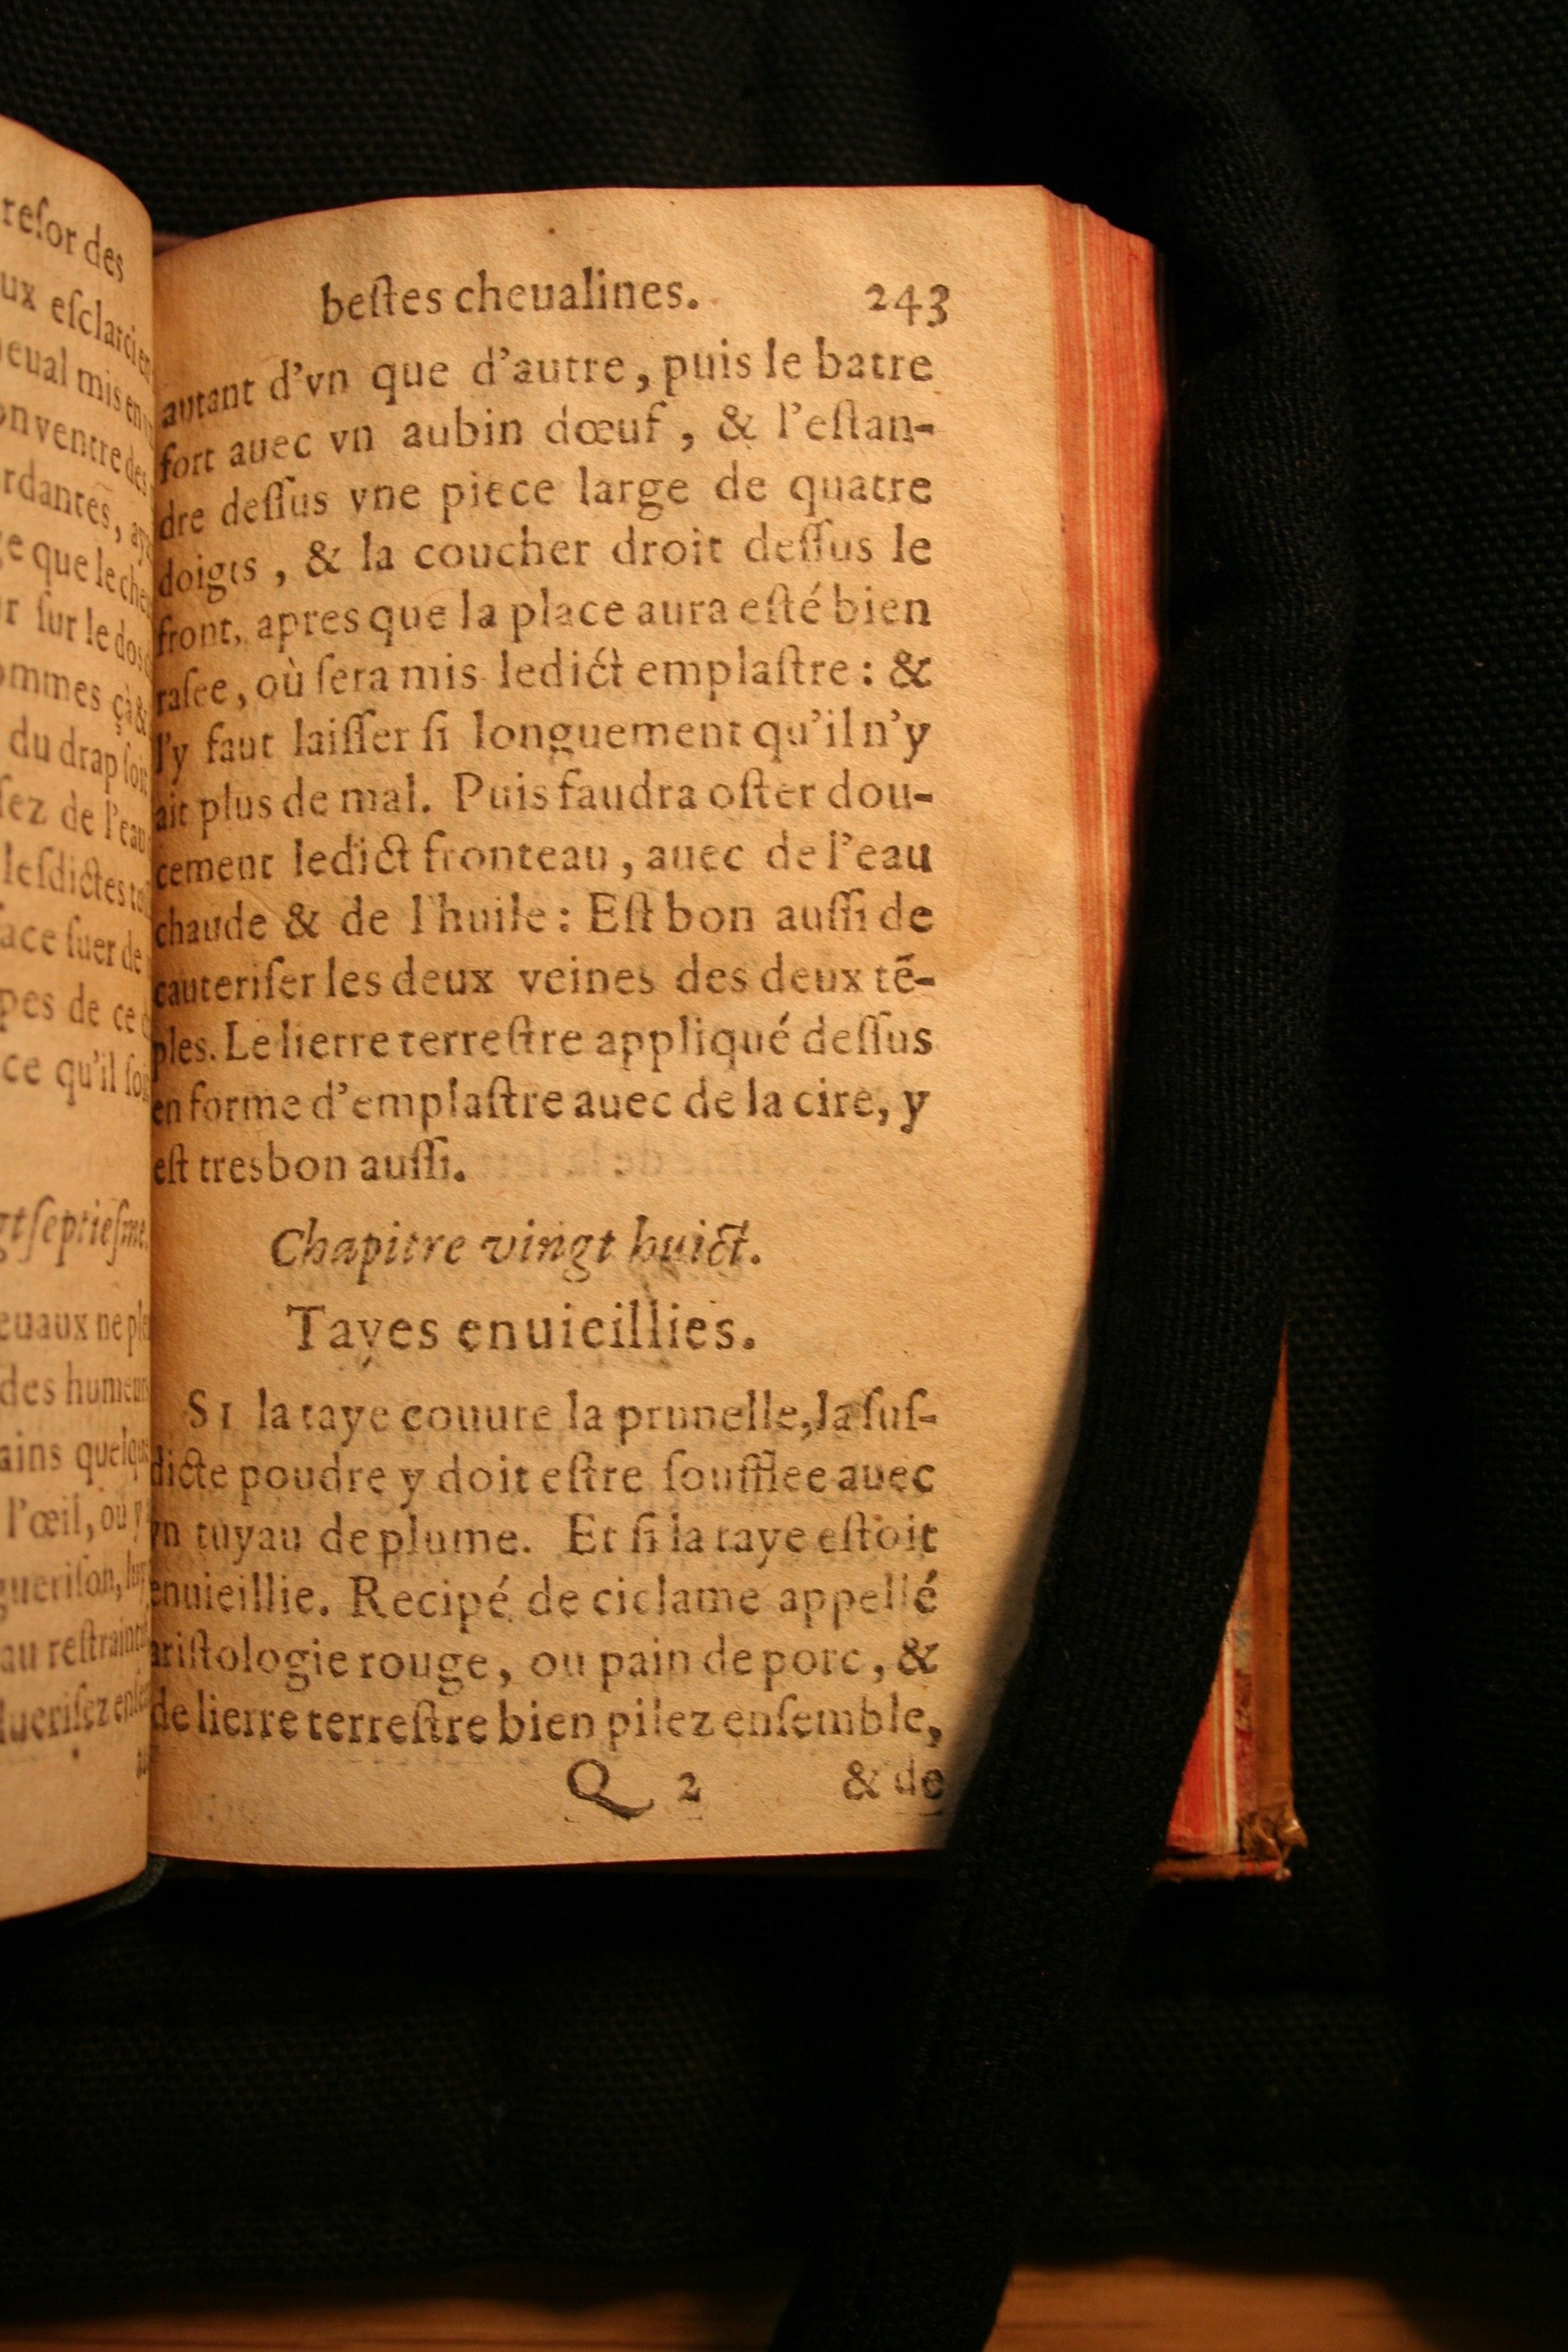 resor des
ux esclarcien
eual mis en
on ventre des
rdantes,
ge que le che
r sur le dos
ommes çà &
du drap soit
sez de l'eau
lesdictes
ace suer de
pes de ce
ce qu'il soit
gt septiesme.
euaux ne
des humeurs
ains quelque
l'œil, ou y
guerison,
au restrainctif
bestes cheualines. 243
autant d'vn que d'autre, puis le batre
fort auec vn aubin dœuf, & l'estan-
dre dessus vne piece large de quatre
doigts, & la coucher droit dessus le
front, apres que la place aura esté bien
rasee, où sera mis ledict emplastre: &
l'y faut laisser si longuement qu'il n'y
ait plus de mal. Puis faudra oster dou-
cement ledict fronteau, auec de l'eau
chaude & de l'huile: Est bon aussi de
cauteriser les deux veines des deux tē-
ples. Le lierre terrestre appliqué dessus
en forme d'emplastre auec de la cire, y
est tresbon aussi.
Chapitre vingt huict.
Tayes enuieillies.
SI la taye couure la prunelle, la sus-
dicte poudre y doit estre soufflee auec
vn tuyau de plume. Et si la taye estoit
enuieillie. Recipé de ciclame appellé
aristologie rouge, ou pain de porc, &
de lierre terrestre bien pilez ensemble,
Q 2 & de